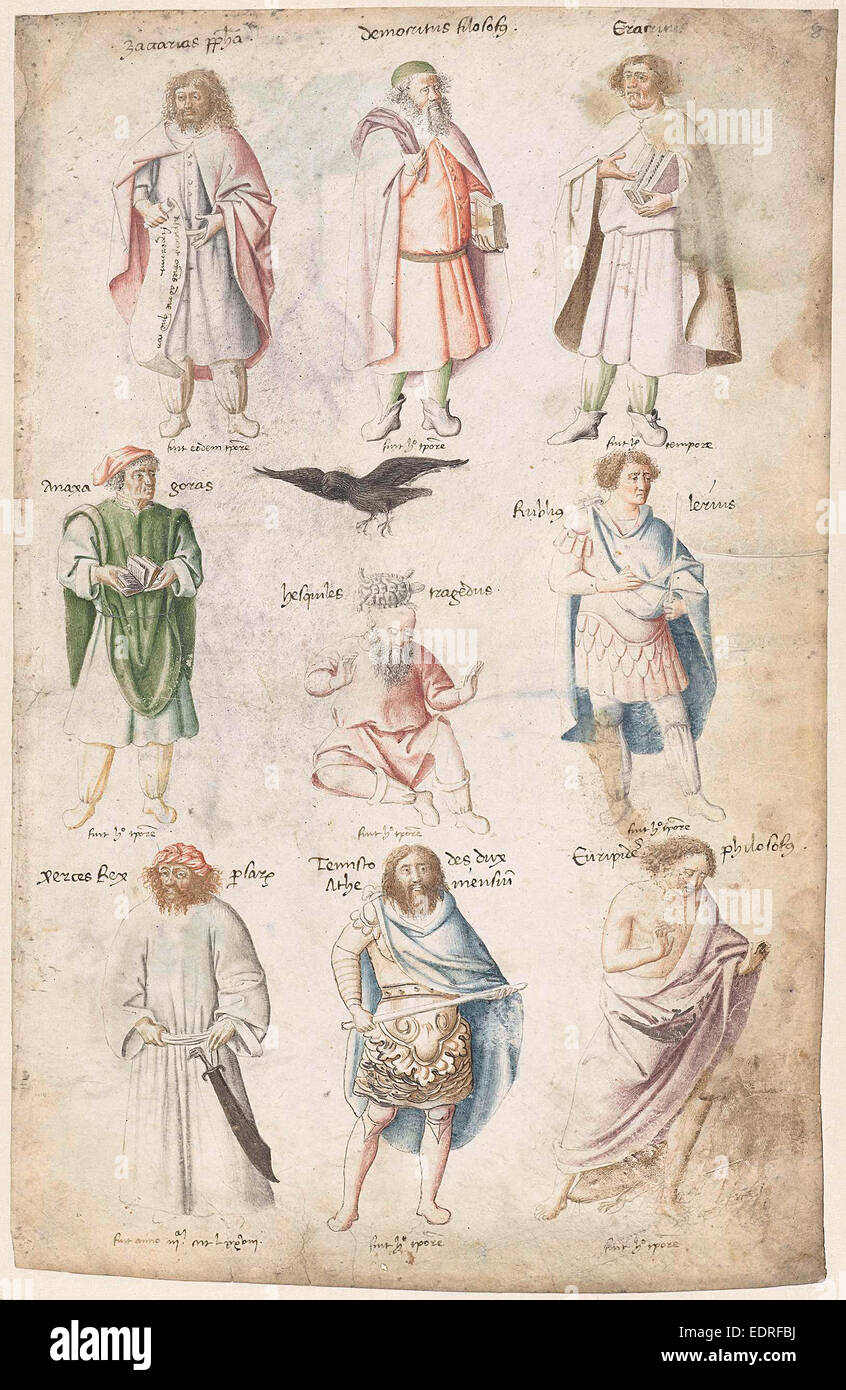 Zaccarias ppħa
Democritus filosofꝰ.
Eracritus
8
fuit eodem tpōre
fuit hº tpōre
fuit hº tempore
Anaxa goras
Rubliꝰ lerius
hesquiles tragedus.
fuit hº tpōre
fuit hº tpōre
fuit hº tpōre
xerces Rex
Temisto des dux
Athe niēsiū
Euripides philosofꝰ.
fuit anno
fuit hº tpōre
fuit hº tpōre
alamy
alamy
Image ID: EDRFBJ
www.alamy.com